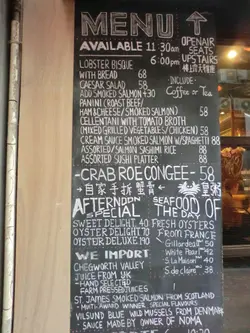 MENU
OPENAIR
SEATS
UPSTAIRS
AVAILABLE 11:30am
6:00pm
LOBSTER BISQUE
WITH BREAD 68
CAESAR SALAD 58
ADD SMOKED SALMON +30
-INCLUDE-
Coffee or Tea
PANINI (ROAST BEEF/
HAM&CHEESE/SMOKED SALMON) 58
CELLENTANI WITH TOMATO BROTH
(MIXED GRILLED VEGETABLES/CHICKEN) 58
CREAM SAUCE SMOKED SALMON W/SPAGHETTI 88
ASSORTED/SALMON SASHIMI RICE 88
ASSORTED SUSHI PLATTER 88
-CRAB ROE CONGEE- 58
自家手拆蟹
粥
AFTERNOON
SPECIAL
SEAFOOD OF
THE DAY
SWEET DELIGHT 40
OYSTER DELIGHT 70
OYSTER DELUXE 190
FRESH OYSTERS
FROM FRANCE
Gillardeau 50
White Pearl 42
S. La Maison
S. de Claire 38
WE IMPORT
CHEGWORTH VALLEY
JUICE FROM UK
- HAND SELECTED
FARM PRESSED JUICES
ST JAMES SMOKED SALMON FROM SCOTLAND
- MULTI-AWARD WINNER SPECIAL FLAVOURS
VILSUND BLUE WILD MUSSELS FROM DENMARK
SAUCE MADE BY OWNER OF NOMA